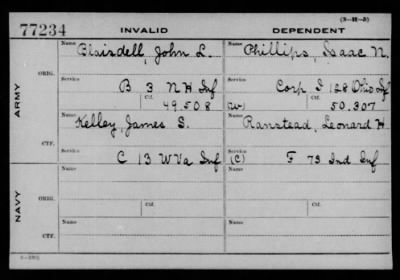 (3-312-2)
77234 INVALID DEPENDENT
Name Name
Blaisdell, John L. Phillips, Isaac N.
ORIG.
Service Service
B 3 N H Inf Corp I 128 Ohio Inf
Ctf. Ctf.
49508 (W) 50,307
ARMY
Name Name
Kelley, James S. Ranstead, Leonard H.
CTF.
Service Service
C 13 W Va Inf (C) F 73 Ind Inf
Name Name
ORIG.
Service Service
NAVY
Ctf. Ctf.
Name Name
CTF.